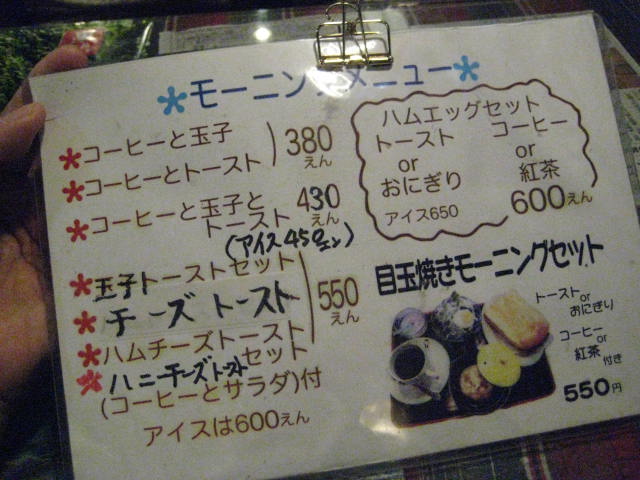 *モーニングメニュー*
*コーヒーと玉子
*コーヒーとトースト
380えん
*コーヒーと玉子と
トースト
430えん
(アイス450エン)
*玉子トーストセット
*チーズトースト
*ハムチーズトースト
*ハニーチーズトーストセット
550えん
(コーヒーとサラダ)付
アイスは600えん
ハムエッグセット
トースト コーヒー
or or
おにぎり 紅茶
アイス650 600えん
目玉焼きモーニングセット
トースト
or
おにぎり
コーヒー
or
紅茶 付き
550円